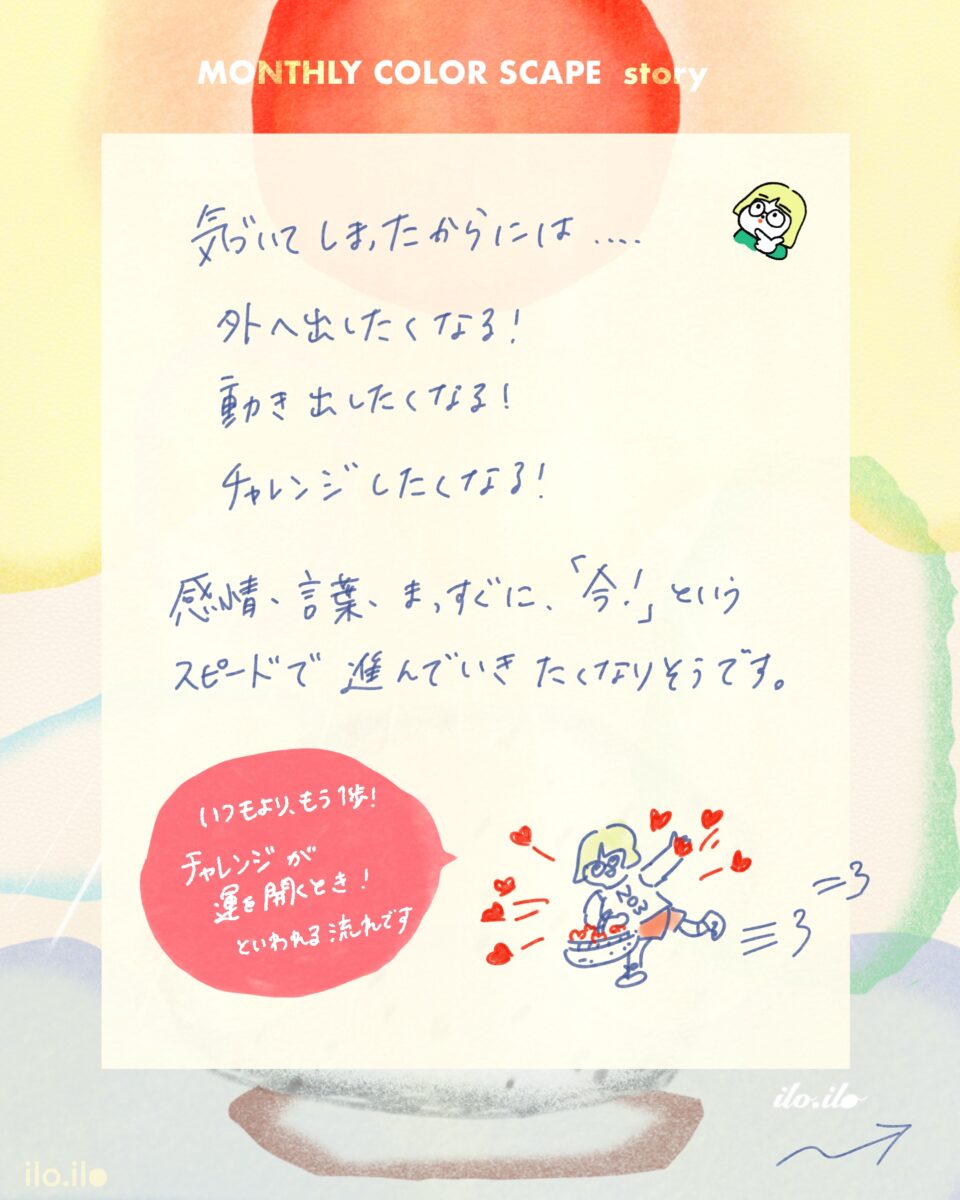 MONTHLY COLOR SCAPE story
気づいてしまったからには....
外へ出したくなる!
動き出したくなる!
チャレンジしたくなる!
感情、言葉、まっすぐに、「今!」という
スピードで進んでいきたくなりそうです。
いつもより、もう1歩!
チャレンジが
運を開くとき!
といわれる流れです
ilo.ilo
ilo.ilo